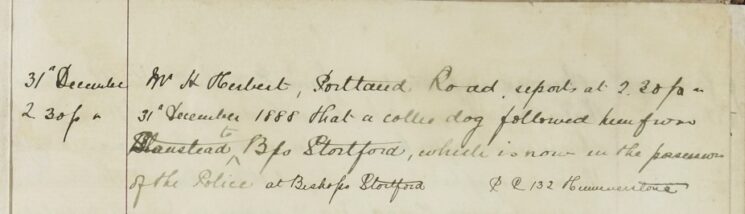 31st December Mr H Herbert, Portland Road, reports at 2.30 pm
2 30 pm 31st December 1888 that a collie dog followed him from
Stanstead to Bps Stortford, which is now in the possession
of the Police at Bishops Stortford P C 132